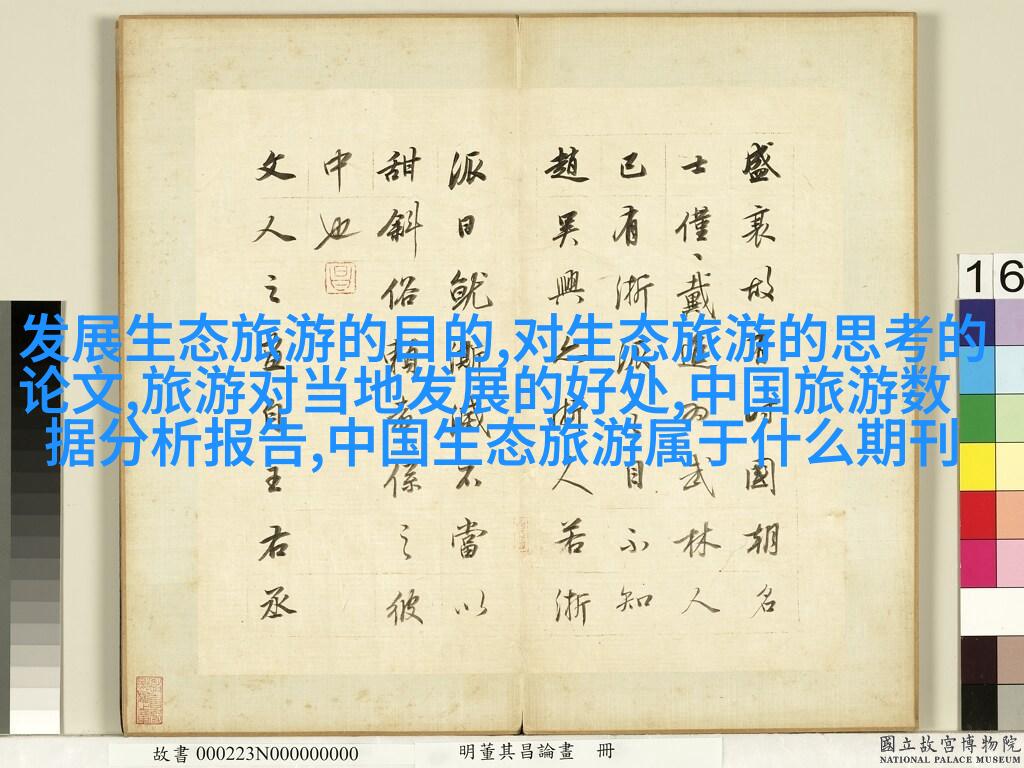 盛衰故有時國朝名
士僅戴進為武林人
已有浙派之目不知
趙吳興亦浙人若浙
派日就澌滅不當以
甜斜俗賴者係之彼
中也
文人之畫自王右丞
发展生态旅游的目的,对生态旅游的思考的
论文,旅游对当地发展的好处,中国旅游数
据分析报告,中国生态旅游属于什么期刊
16
故書 000223N000000000
明董其昌論畫 冊
國立故宮博物院
NATIONAL PALACE MUSEUM